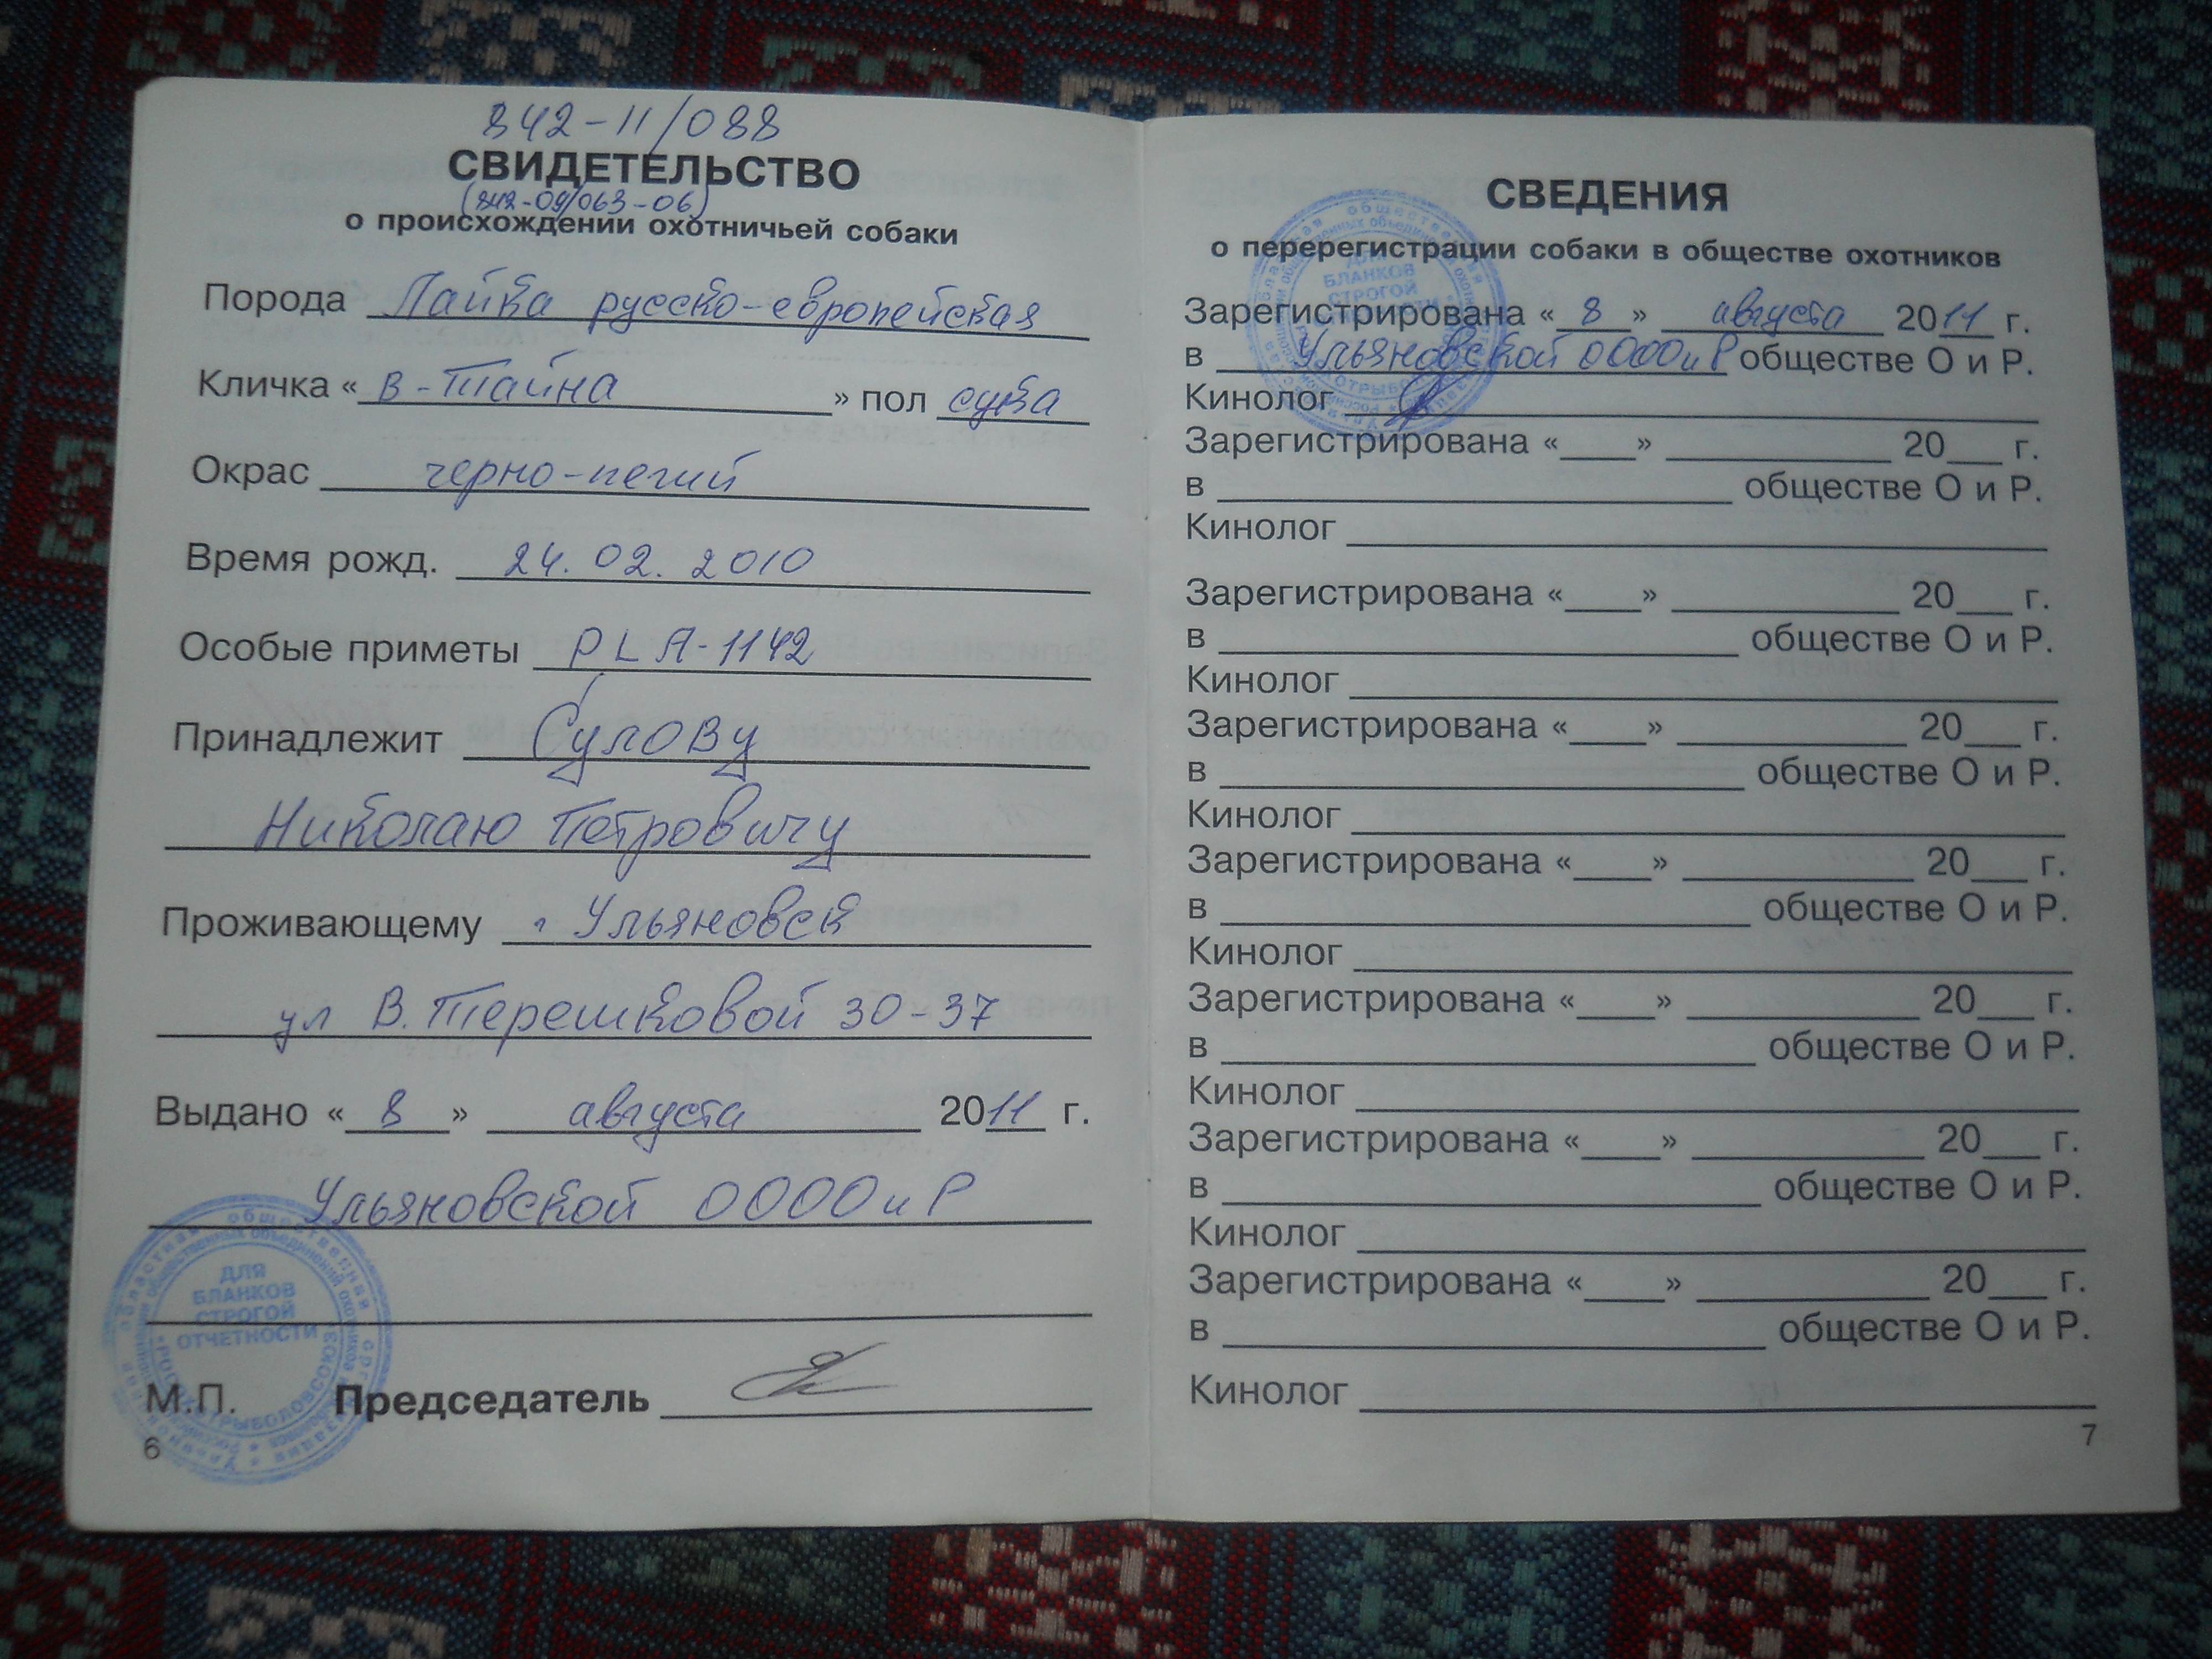 842-11/088
СВИДЕТЕЛЬСТВО
(842-09/063-06)
о происхождении охотничьей собаки
Порода Лайка русско-европейская
Кличка « В-Тайна » пол сука
Окрас черно-пегий
Время рожд. 24.02.2010
Особые приметы PLA-1142
Принадлежит Сулову
Николаю Петровичу
Проживающему г Ульяновск
ул В. Терешковой 30-37
Выдано « 8 » августа 2011 г.
Ульяновской ОООО и Р
ДЛЯ
БЛАНКОВ
СТРОГОЙ
ОТЧЕТНОСТИ
М.П. Председатель
6
СВЕДЕНИЯ
о перерегистрации собаки в обществе охотников
ДЛЯ
БЛАНКОВ
СТРОГОЙ
Зарегистрирована « 8 » августа 2011 г.
в Ульяновской ОООО и Р обществе О и Р.
Кинолог
Зарегистрирована «____» ____ 20___ г.
в ____ обществе О и Р.
Кинолог ____
Зарегистрирована «____» ____ 20___ г.
в ____ обществе О и Р.
Кинолог ____
Зарегистрирована «____» ____ 20___ г.
в ____ обществе О и Р.
Кинолог ____
Зарегистрирована «____» ____ 20___ г.
в ____ обществе О и Р.
Кинолог ____
Зарегистрирована «____» ____ 20___ г.
в ____ обществе О и Р.
Кинолог ____
Зарегистрирована «____» ____ 20___ г.
в ____ обществе О и Р.
Кинолог ____
Зарегистрирована «____» ____ 20___ г.
в ____ обществе О и Р.
Кинолог ____
7